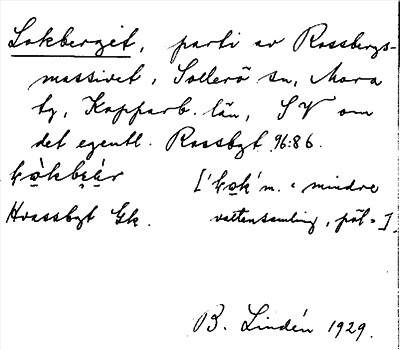 Lokberget, parti av Rossbergs-
massivet, Sollerö sn, Mora
tg, Kopparb. län, SV om
det egentl. Rossbgt 96:86.
['kǫk' m. "mindre
Hvassbgt Gk. vattensamling, pöl"].
B. Lindén 1929.